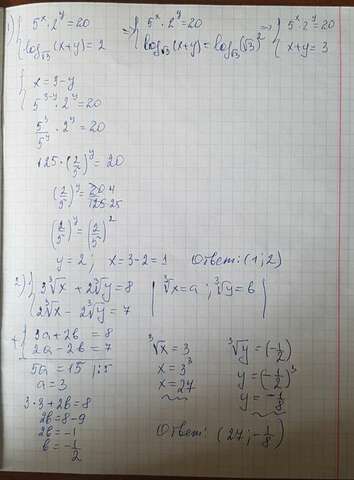 1) { 5^x · 2^y = 20 => { 5^x · 2^y = 20 => { 5^x · 2^y = 20
log_√3 (x+y) = 2 log_√3 (x+y) = log_√3 (√3)^2 x+y = 3
{ x = 3-y
5^(3-y) · 2^y = 20
5^3/5^y · 2^y = 20
125 · (2/5)^y = 20
(2/5)^y = 20 4/125 25
(2/5)^y = (2/5)^2
y = 2; x = 3-2 = 1 Ответ: (1; 2)
2) { 3∛x + 2∛y = 8 | ∛x = a; ∛y = b |
2∛x - 2∛y = 7
+ { 3a+2b = 8
2a-2b = 7
5a = 15 |:5
a = 3
3·3+2b = 8
2b = 8-9
2b = -1
b = -1/2
∛x = 3
x = 3^3
x = 27
∛y = (-1/2)
y = (-1/2)^3
y = -1/8
Ответ: (27; -1/8)